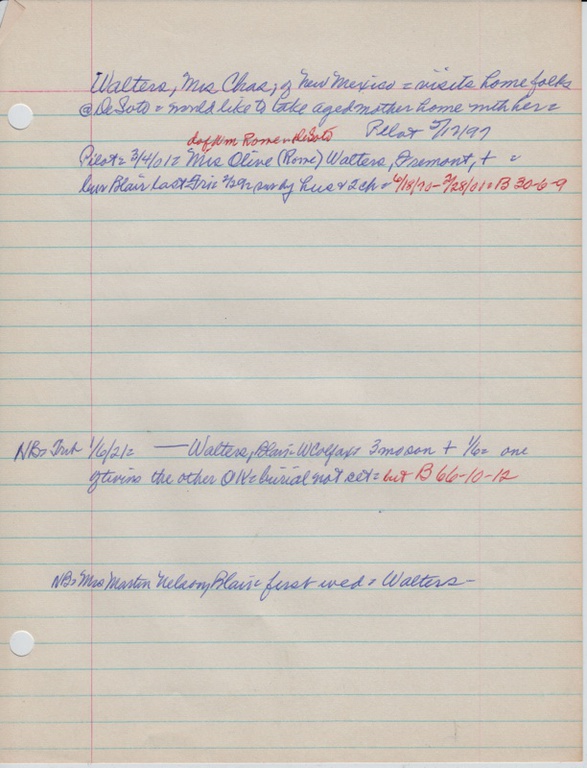 Walters, Mrs Chas; of New Mexico = visits home folks
@ DeSoto = would like to take aged mother home with her =
Pilot 5/12/97
d of Wm Rome = DeSoto
Pilot = 3/4/01 = Mrs Olive (Rome) Walters, Fremont, + =
bur Blair last Fri = 3/29 = sur by hus & 2 ch = 6/18/70 - 2/28/01 = B 30-6-9
NB = Trib 1/6/21 = — Walters, Blair = W Colfax = 3 mo son + 1/6 = one
of twins the other OK = burial not set = but B 66-10-12
NB = Mrs Martin Nelson, Blair = first wed = Walters -